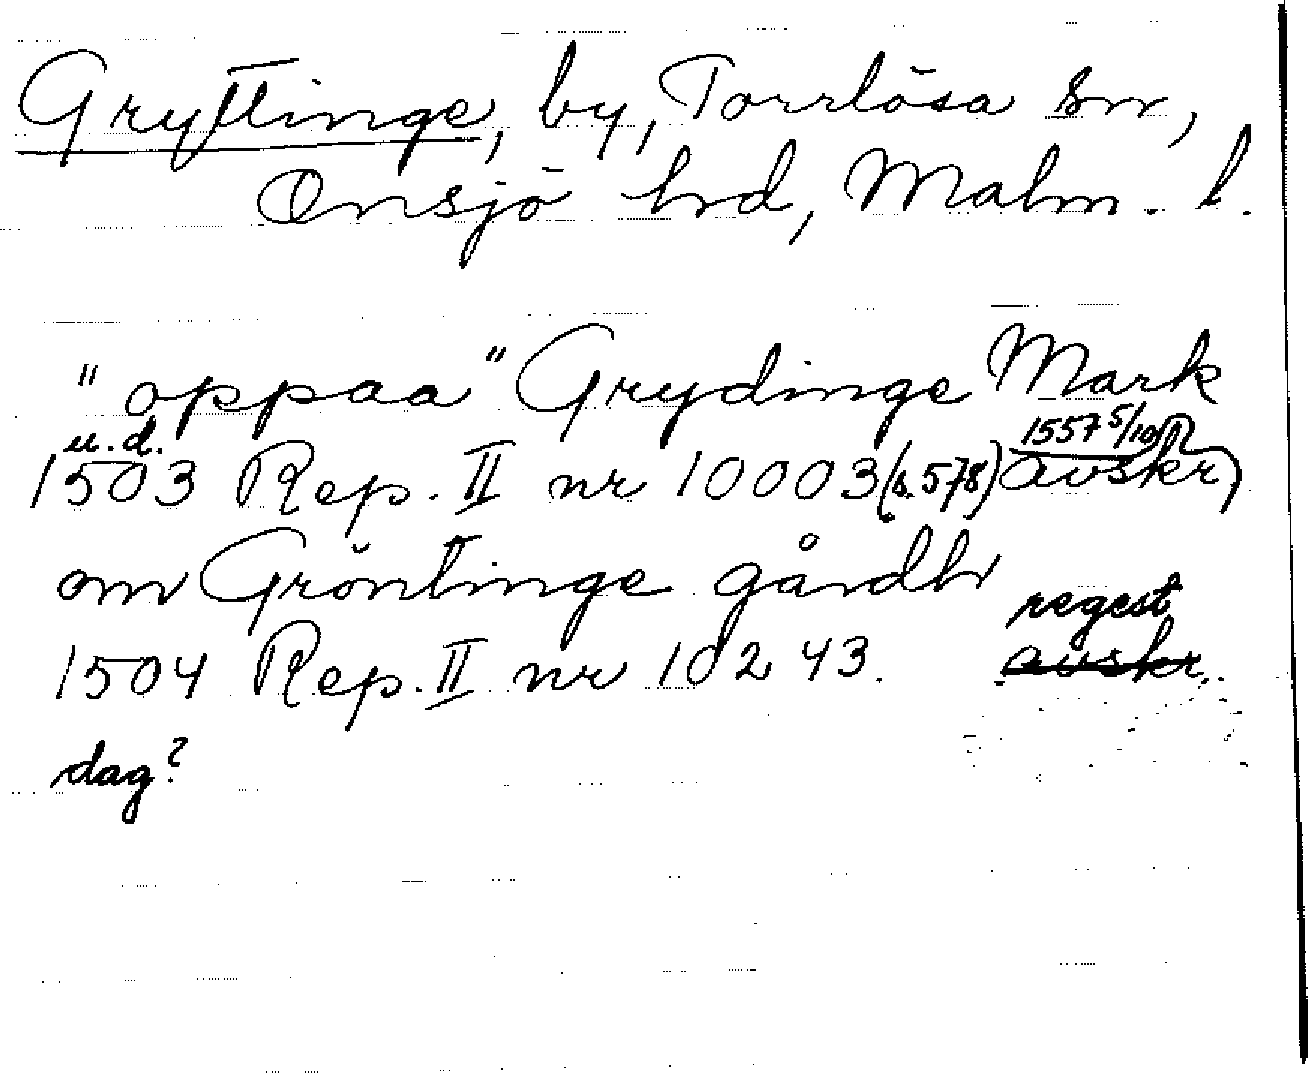 Gryttinge, by, Torrlösa sn,
Onsjö hrd, Malm. l.
"oppaa" Grydinge Mark
u.d. 1557 5/10
1503 Rep. II nr 10003 (s. 578) avskr
om Gröntinge gårdh
regest
1504 Rep. II nr 10243. avskr.
dag?